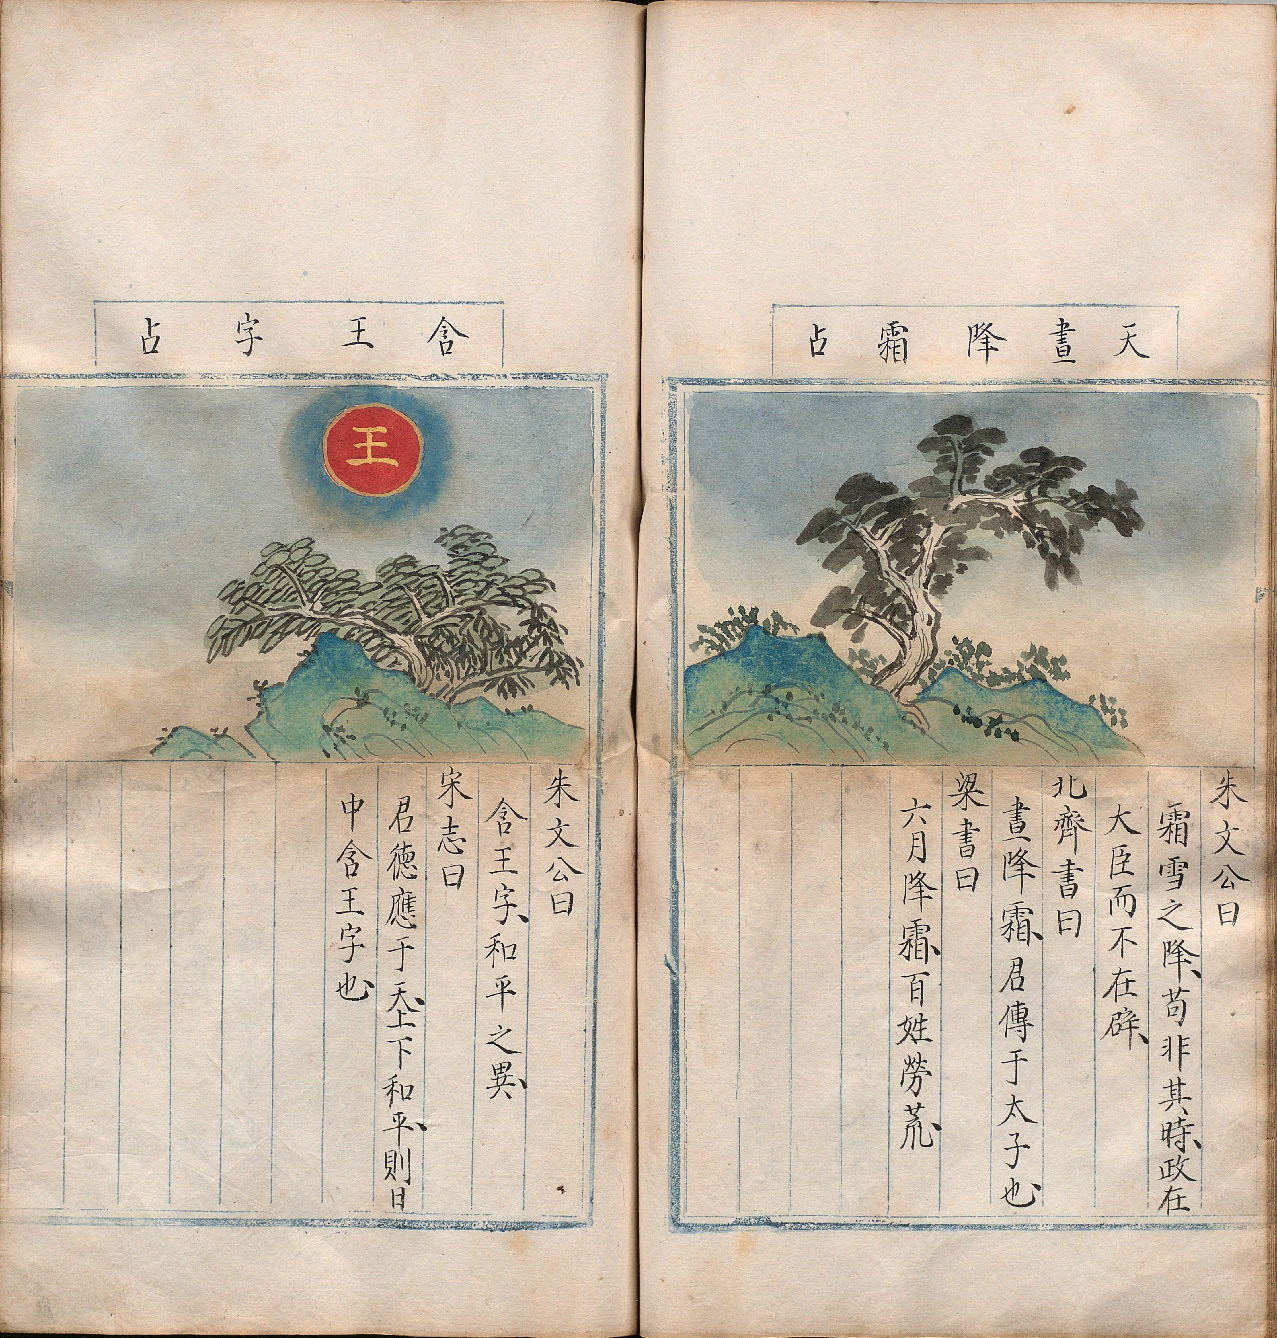 天晝降霜占
朱文公曰
霜雪之降苟非其時政在
大臣而不在辟
北齊書曰
晝降霜君傳于太子也
梁書曰
六月降霜百姓勞荒
含王字占
王
朱文公曰
含王字和平之異
宋志曰
君德應于天上下和平則日
中含王字也